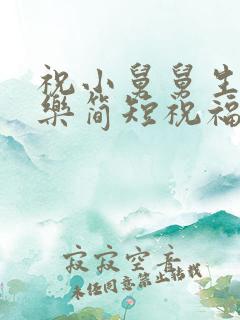 祝小舅舅生
樂简短祝福
寂寂空音
未经同意禁止转载